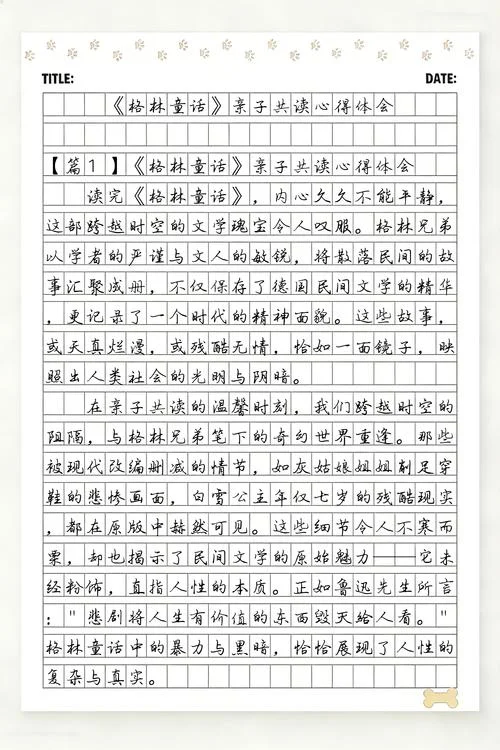 TITLE: DATE:
《格林童话》亲子共读心得体会
【篇1】《格林童话》亲子共读心得体会
读完《格林童话》，内心久久不能平静，
这部跨越时空的文学瑰宝令人叹服。格林兄弟
以学者的严谨与文人的敏锐，将散落民间的故
事汇聚成册，不仅保存了德国民间文学的精华
，更记录了一个时代的精神面貌。这些故事，
或天真烂漫，或残酷无情，恰如一面镜子，映
照出人类社会的光明与阴暗。
在亲子共读的温馨时刻，我们跨越时空的
阻隔，与格林兄弟笔下的奇幻世界重逢。那些
被现代改编删减的情节，如灰姑娘姐姐削足穿
鞋的悲惨画面，白雪公主年仅七岁的残酷现实
，都在原版中赫然可见。这些细节令人不寒而
栗，却也揭示了民间文学的原始魅力——它未
经粉饰，直指人性的本质。正如鲁迅先生所言
："悲剧将人生有价值的东西毁灭给人看。"
格林童话中的暴力与黑暗，恰恰展现了人性的
复杂与真实。